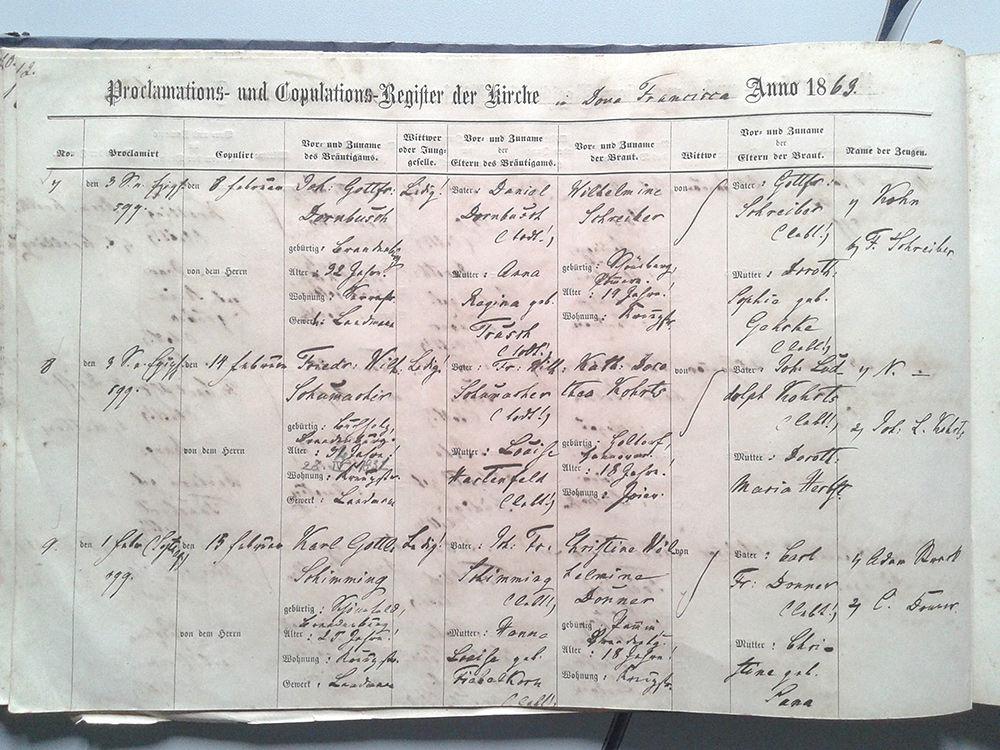 Proclamations- und Copulations-Register der Kirche in Dona Francisca Anno 1863.
No. Proclamirt Copulirt Vor- und Zuname des Bräutigams. Wittwer oder Junggeselle. Vor- und Zuname der Eltern des Bräutigams. Vor- und Zuname der Braut. Wittwe Vor- und Zuname der Eltern der Braut. Name der Zeugen.
7 den 3 S. n. den 8 Februar
Joh: Gottfr:
Dornbusch
gebürtig: Brandenburg
Alter: 32 Jahre!
Wohnung:
Gewerk: Landmann
von dem Herrn
Ledig!
Vater: Daniel
Dornbusch
(todt!)
Mutter: Anna
Regina geb.
(todt!)
Wilhelmine
Schreiber
gebürtig:
Alter: 19 Jahre!
Wohnung:
von
Vater: Gottfr:
Schreiber
(lebt!)
Mutter: Doroth:
Sophie geb.
Gehrke
(lebt!)
1) Kohn
2) F. Schreiber
8 den 3 S. n. den 14 Februar
Friedr: Wilh.
Schumacher
gebürtig:
Brandenburg.
Alter: Jahre!
Wohnung:
Gewerk: Landmann
von dem Herrn
Ledig!
Vater: Fr: Wilh:
Schumacher
(todt!)
Mutter: Louise
Hartenfeld
(lebt!)
Kath: Doro
thea Kohrts
gebürtig:
Hannover.
Alter: 18 Jahre!
Wohnung:
von
Vater: Joh: Lud
dolph Kohrts
(lebt!)
Mutter: Doroth:
Maria
1) N. —
2) Joh: L. Kohrts
9. den den 15 Februar
Karl Gottl:
Schimming
gebürtig: Schönfeld,
Brandenburg
Alter: Jahre!
Wohnung:
Gewerk: Landmann
von dem Herrn
Ledig!
Vater: Joh: Fr:
Schimming
(lebt!)
Mutter: Hanne
Louise geb.
Fiebelkorn
(lebt!)
Christine Wil
helmine
Donner
gebürtig:
Alter: 18 Jahre!
Wohnung:
von
Vater: Carl
Fr: Donner
(lebt!)
Mutter: Chri-
stine geb.
1) Adam
2) C. Donner